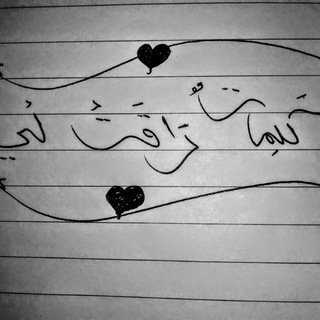 كَلِمَاتٌ رَاقَتْ لِي